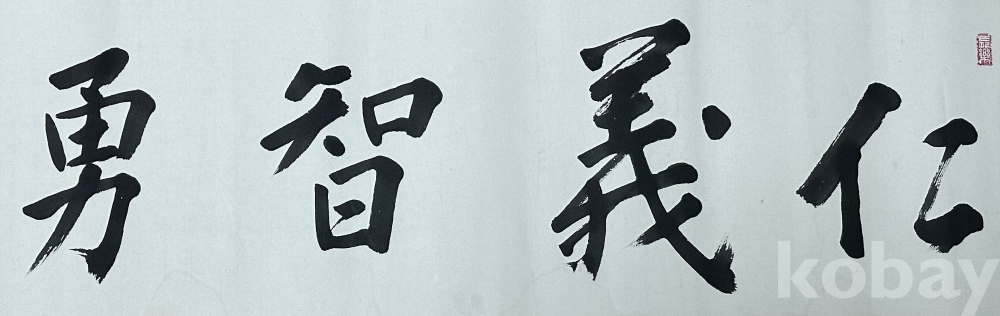 仁義智勇
kobay